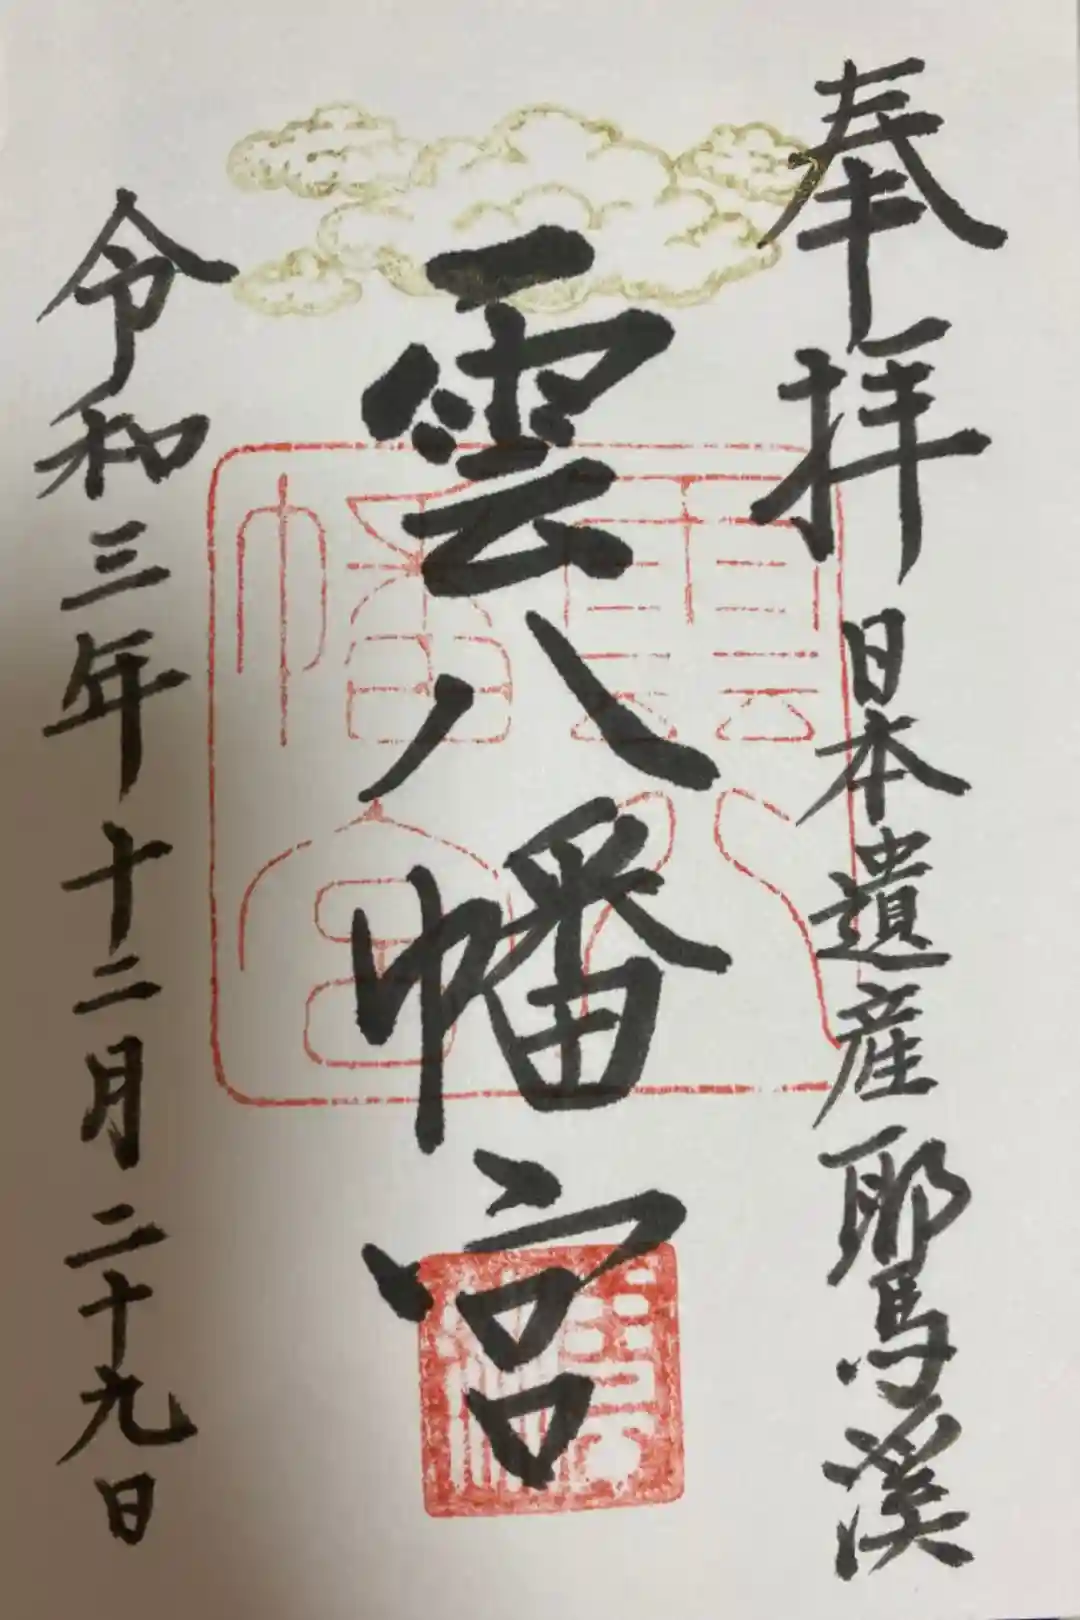 奉拝 日本遺産 耶馬溪
雲八幡宮
令和三年十二月二十九日